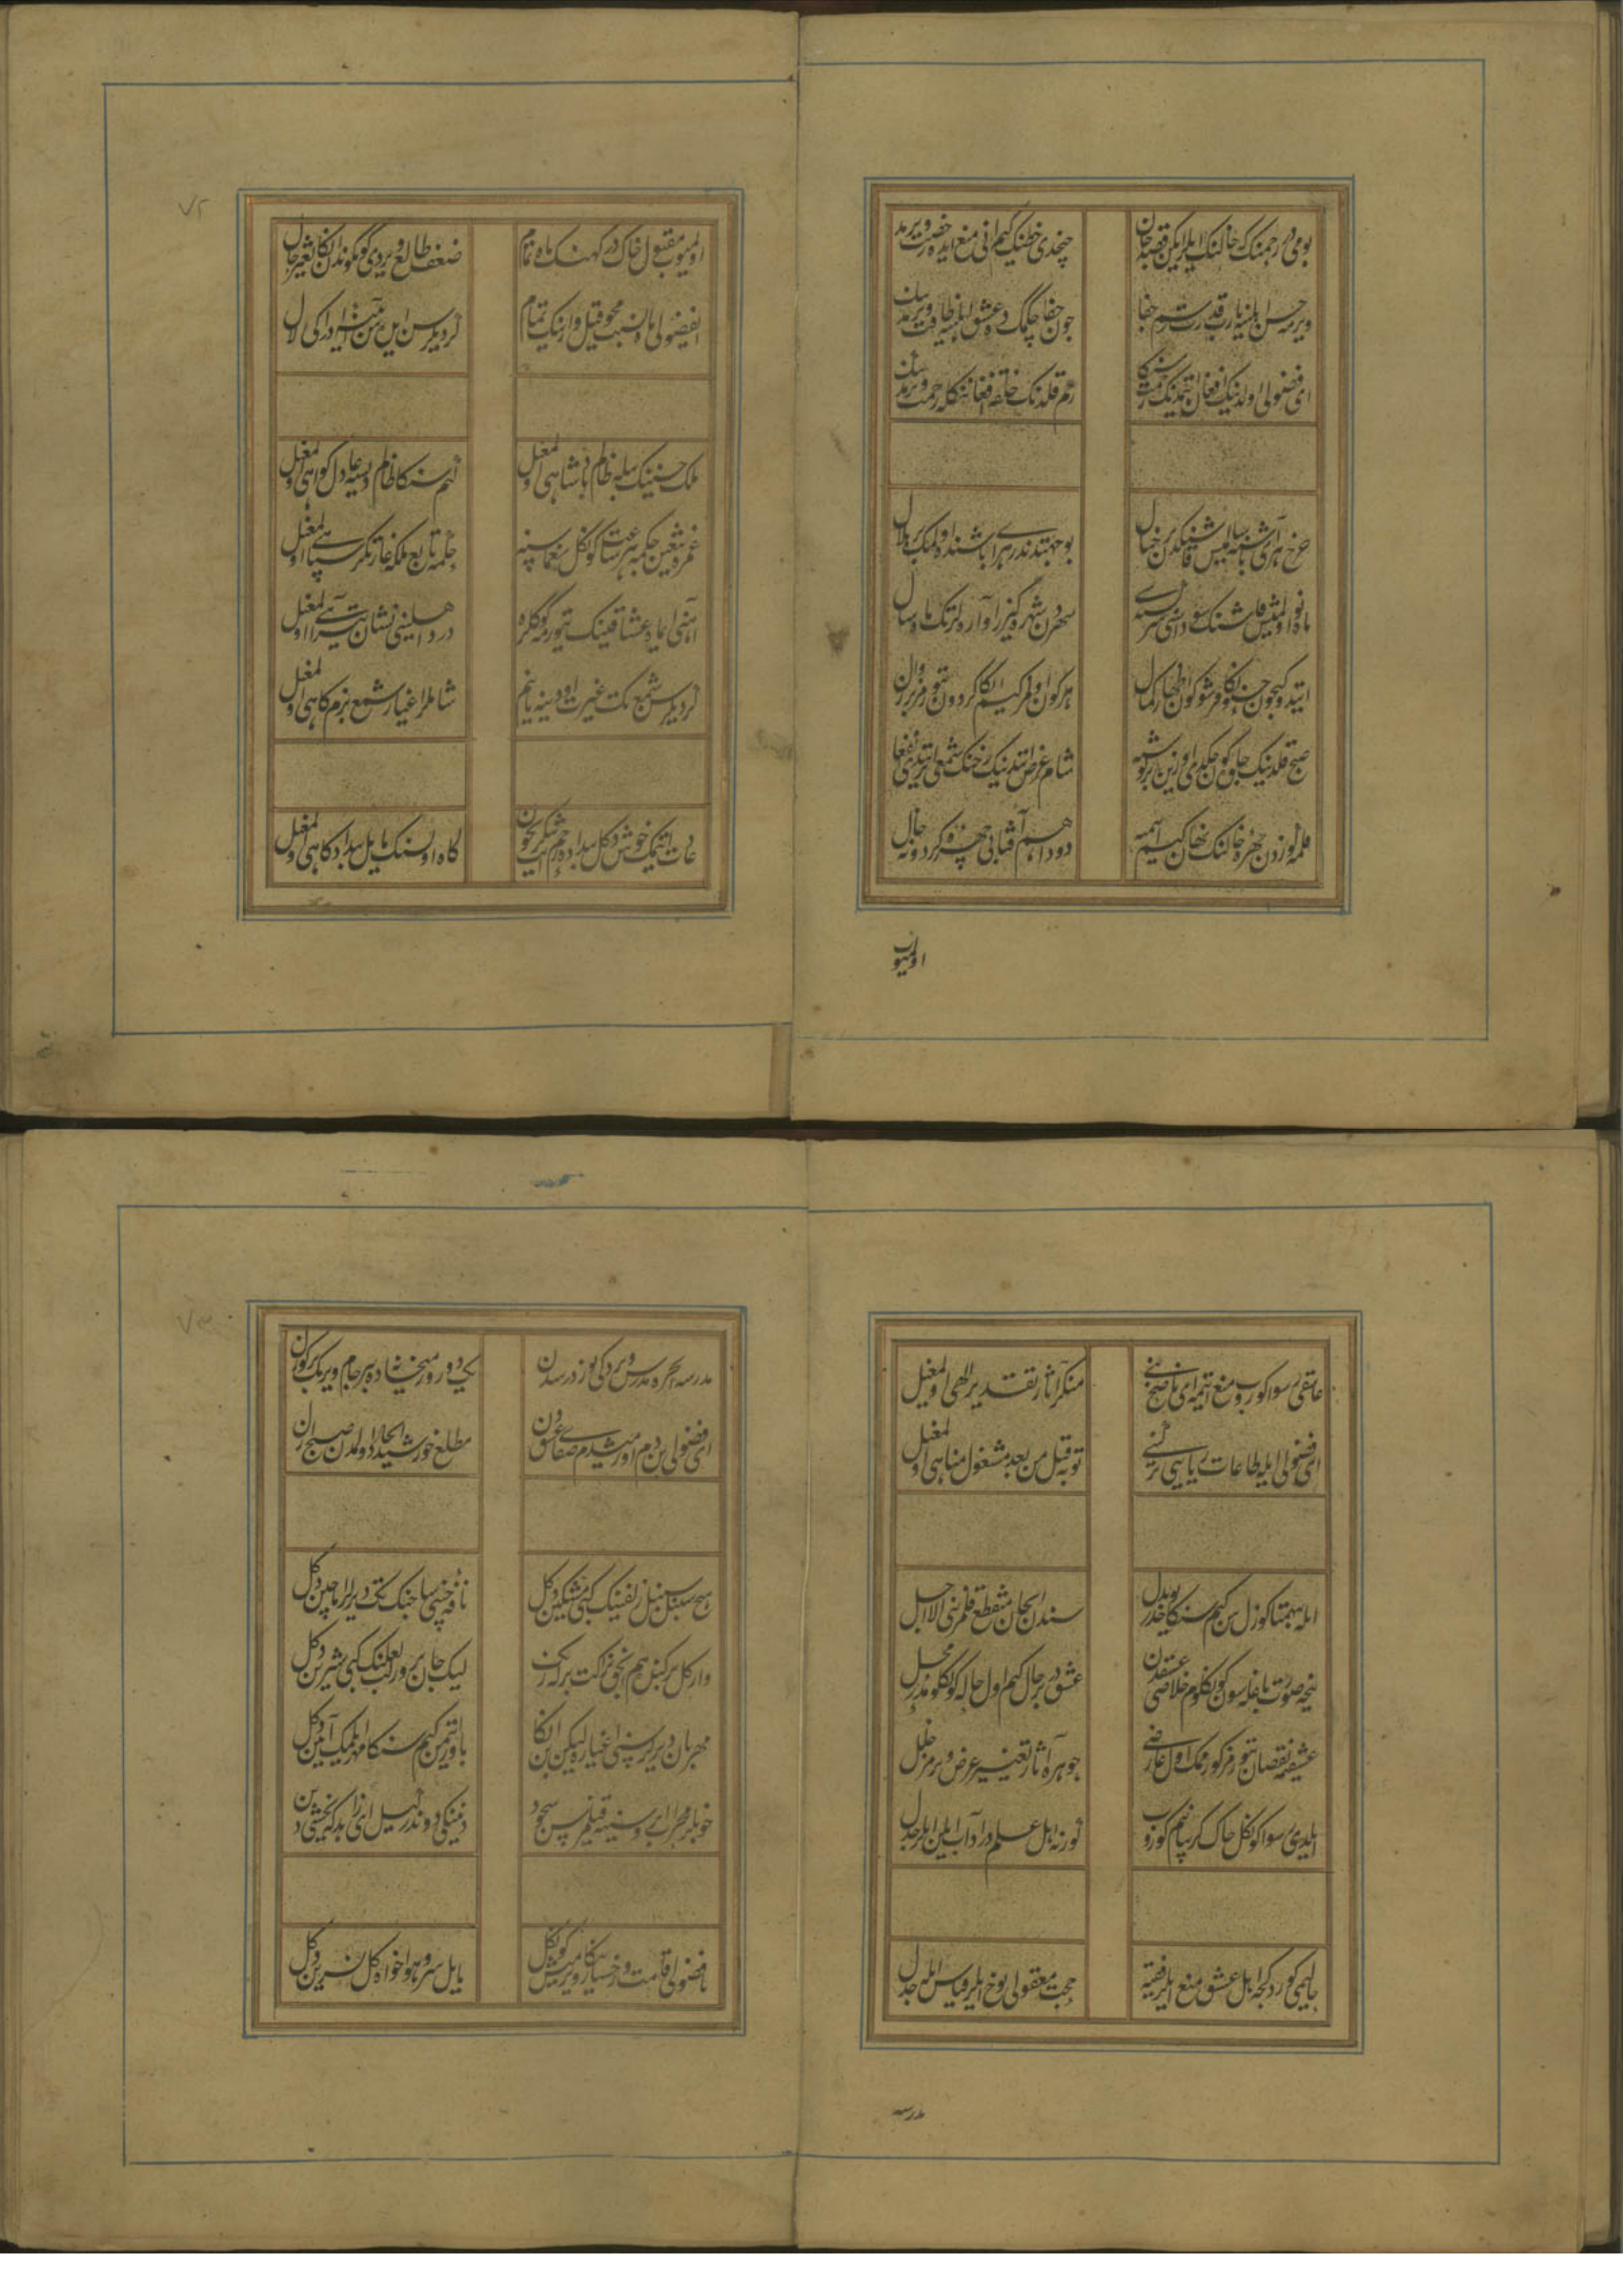 بومی در رحمنک که خالنک ایلر ایکن قصد جان
چخدی خطنک کیم انی منع ایده رخصت ویرمدنک
ویرمه حسن اهلینه یارب قدرت رسم جفا
چون جفا چکمکده عشق اهلینه طاقت ویرمدنک
ای فضولی اولدنیک افغان ایتمدنیک رحمت سنکا
رحم قلدنک خلقه افغاننکله زحمت ویرمدنک
چرخ هر آی باشینه سالمیش قاشینکدن بر خیال
بو جهتدندر هر آی باشنده اولمک بر هلال
ماه نو اولمیش قاشنک سوداسی نک سرکشته سی
شهردن شهره کیزر آواره لر تک ماه و سال
ایتدوکیچون حسنکا قرشو کون اظهار کمال
هر کون اولمر کیم انکا کردون یتورمز بر زوال
صبح قلدنیک جلوه کون چکدی اوزین بر کوشه یه
شام عرض ایتدنیک رخنک شمعی ایتدی انفعال
قلمه لوزدن چهره خالنک نهان کیم آهمه
دود آهم آفتابی چهره کردونه خال
اولمیوب
اولمیوب مقبول خاک درکهنک ماه تمام
ضعف طالع ویردی کوکوندن انکا تغییر حال
ای فضولی ما و من نسبتین محو قیل وارنک تمام
کر دیلرسن ایلیه سن ادراک لا یزال
ملک حسننیک سیله ظالم پادشاهی اولمغیل
اهم سنکا ظالم دیسه عادل کواهی اولمغیل
غمزه تیغین چکمه هر ساعت کوکل یغماسینه
چکمه تابع ملکه غارتکر سپاهی اولمغیل
آهنی اماده عشاقینک یتورمه کوکلره
درد اهلینی نشان تیر آهی اولمغیل
کر دیلرسن شمع تک غیرت اودینه یانم
شاملر اغیار شمع بزمکاهی اولمغیل
عادت ایتمک خوش دکل بیداده رحم ایت شکر ایچون
کاه اولسنک مایل بیداد کاهی اولمغیل
عاشقی رسوا کوروب منع ایتمه ای ناصح بنی
منکر آثار تقدیر الهی اولمغیل
ای فضولی ایله طاعات ریایی ترکنی
توبه قیل من بعد مشغول مناهی اولمغیل
ایله همتا کوزل سن کیم سنکا یوخدر بدل
سندن ای جان منقطع قلمز بنی الا اجل
نیجه صورت باغله سون کوکلوم خلاصی عشقدن
عشق در بر حال کیم اول حاله کوکلومدر محل
عشقمه نقصان یتورمز کورمک اول عارضی
جوهر آثار تغییر عرض ویرمز خلل
ایلدی رسوا کوکل چاک کریبانم کوروب
کورنه اهل علم در آداب ایلن ایلر جدل
حالیمی کوردکجه اهل عشق منع ایلر فقیه
حجت معقولی یوخ ایلر قیاس ایله جدل
مدرسه
مدرسه ایچره مدرس ویردکی یوز درسدن
یکدور میخانه ده بر جام ویرمک بر کوزل
ای فضولی بن دم اورمیشدم صفای عشقدن
مطلع خورشید انجاز اولمدن صبح ازل
هیچ سنبل سنبل زلفینک کبی مشکین دکل
نافه چینی ساچنک تک دیرلر اما چین دکل
وار کل برکنده هم البته نزاکت بر انک
لیک جان پرور لعلنک کبی شیرین دکل
مهربان دیرلر سنی اغیاره لیکن بن انکا
باور ایتمن کیم سنکا مهر ایلمک آیین دکل
خوبلر محراب ابروسینه قیلمز سن سجود
دینکی دوندر کیل ای زاهد که یخشی دین دکل
تا فضولی قامت و رخسارینکا ویرمیش کوکل
مایل سرو و هواخواه کل نسرین دکل